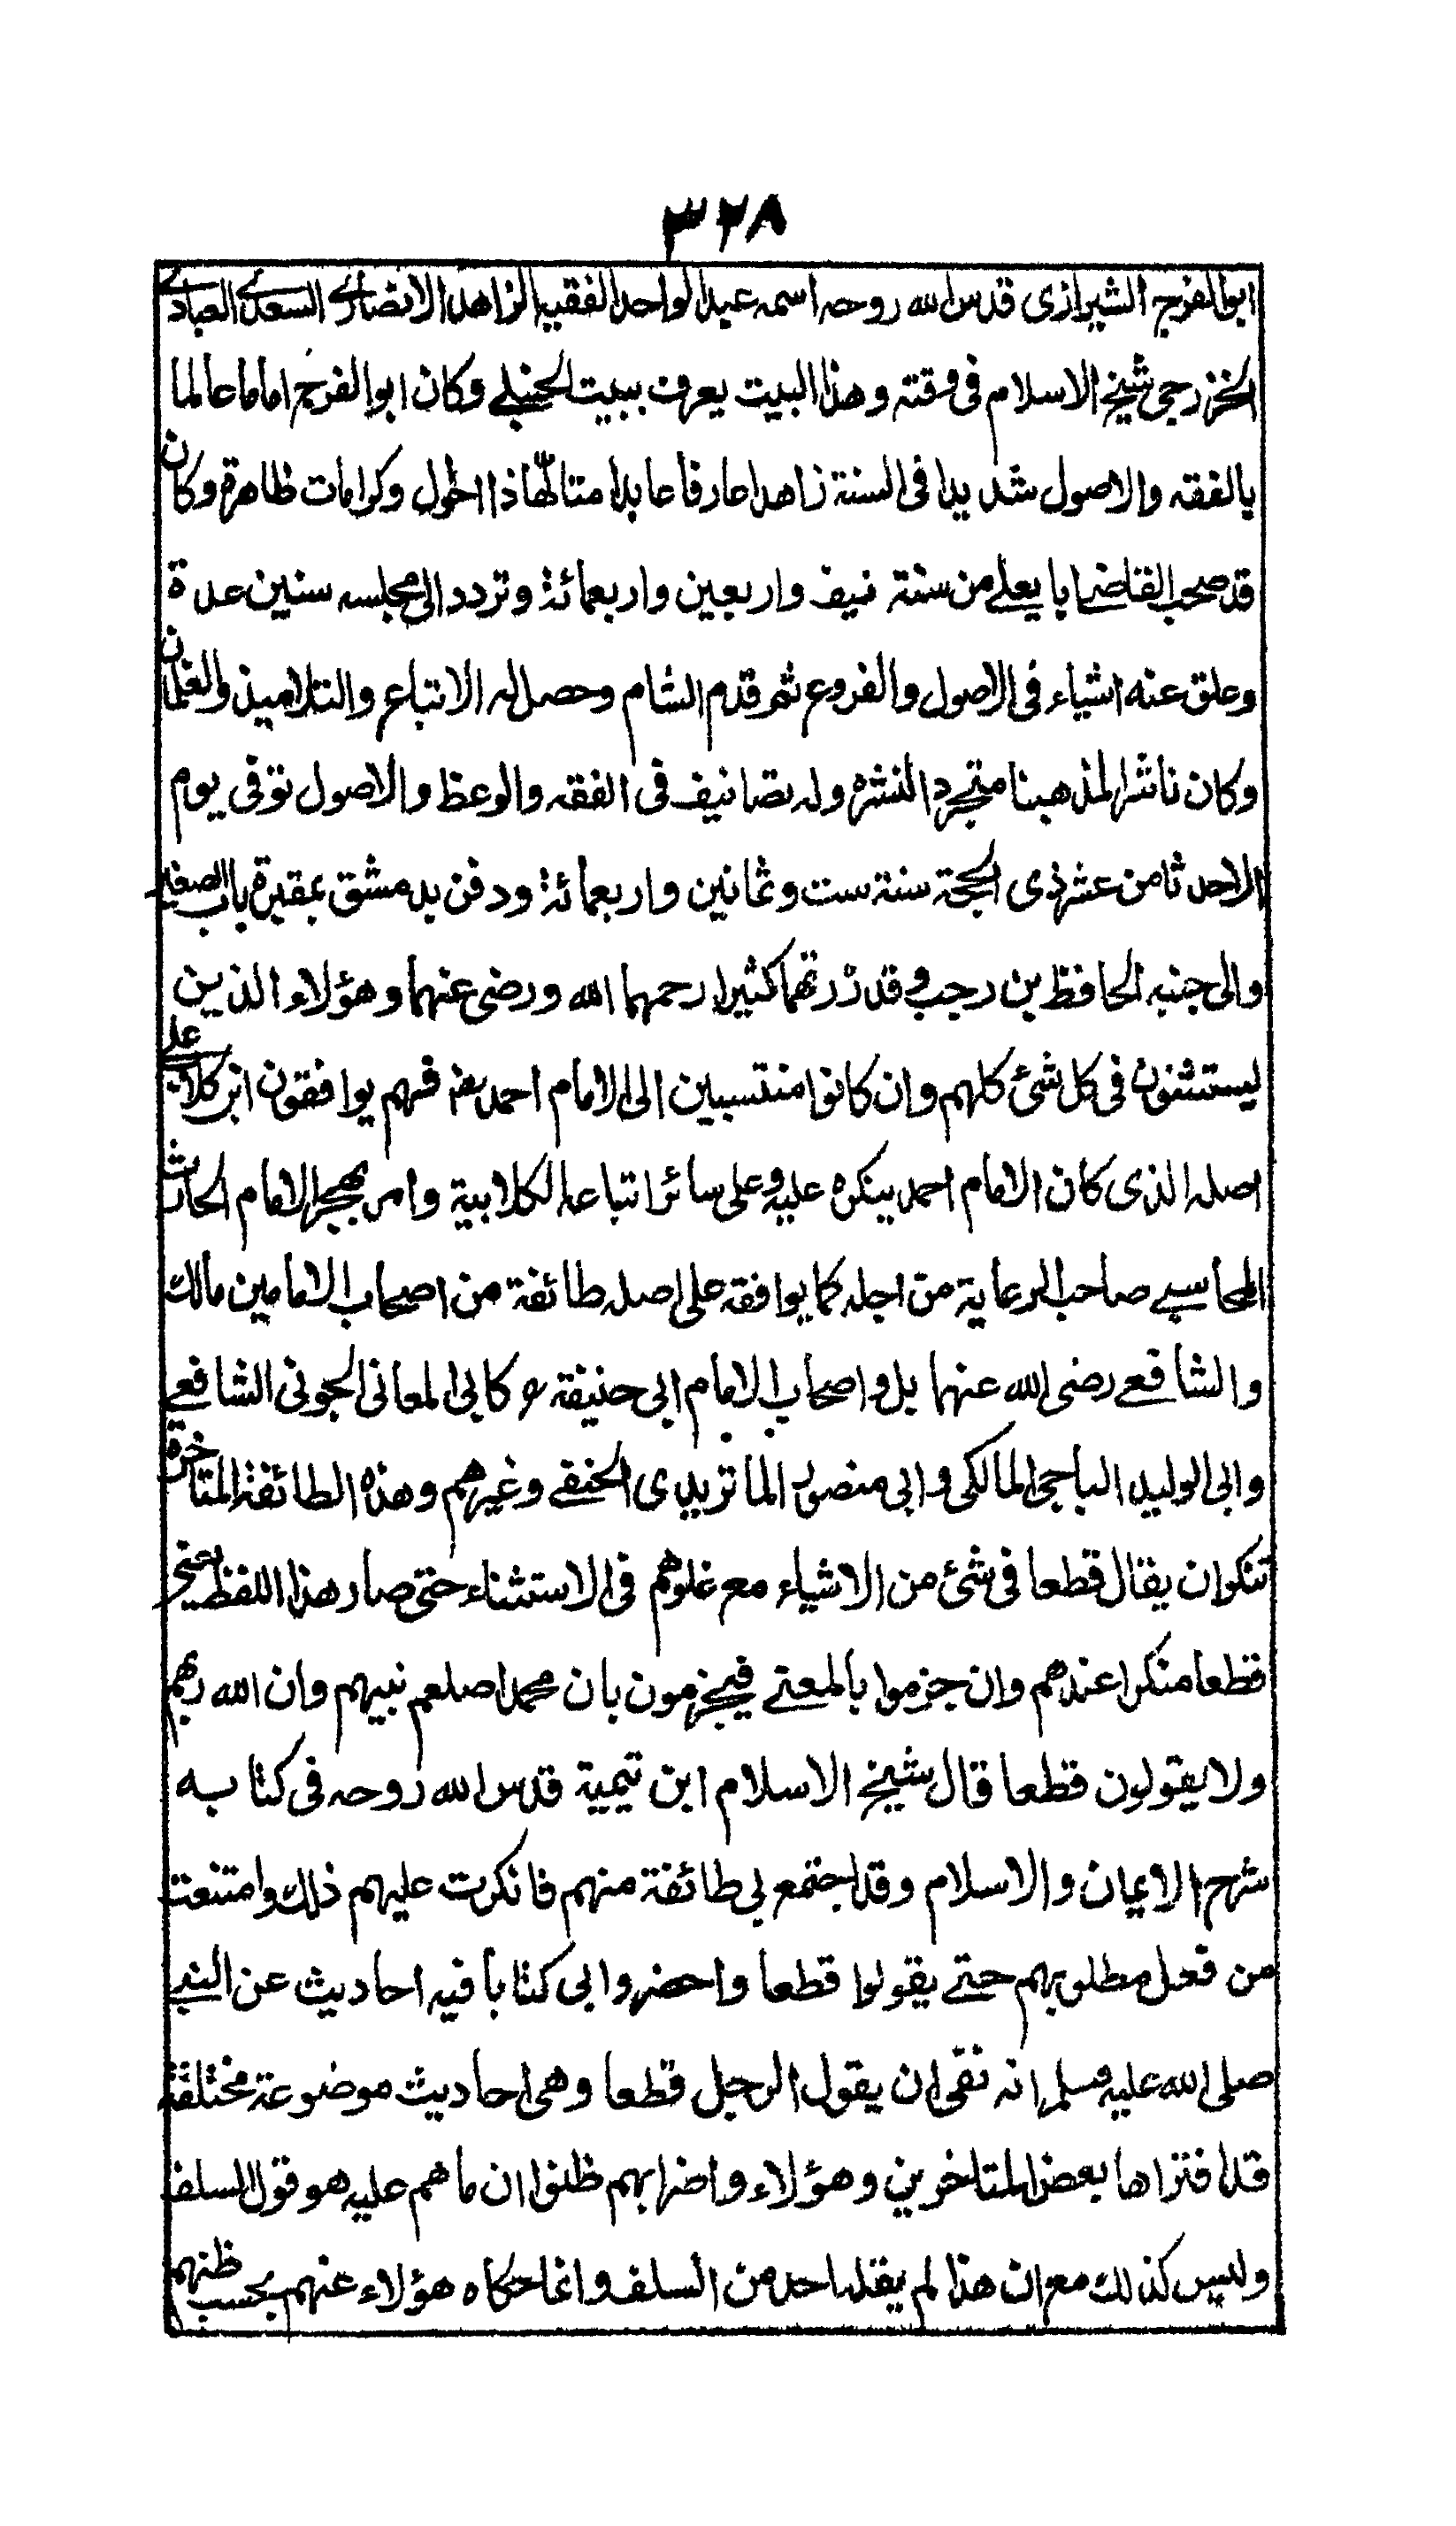 ٣٢٨
ابوالفرج الشيرازى قدس الله روحه اسمه عبد الواحد الفقيه الزاهد الانصارى السعدى العبادى
الخزرجى شيخ الاسلام فى وقته وهذا البيت يعرف ببيت الحنبلے وكان ابو الفرج اماما عالما
بالفقه والاصول شديدا فى السنة زاهدا عارفا عابدا متالّها ذا احوال وكرامات ظاهرة وكان
قد صحب القاضے ابا يعلے من سنة نيف واربعين واربعمائة وتردد الى مجلسه سنين عدة
وعلق عنه اشياء فى الاصول والفروع ثم قدم الشام وحصل له الاتباع والتلاميذ والغلمان
وكان ناشرا لمذهبنا متجرد النشره وله تصانيف فى الفقه والوعظ والاصول توفى يوم
الاحد ثامن عشر ذى الحجة سنة ست وثمانين واربعمائة ودفن بدمشق بمقبرة باب الصغير
والى جنبه الحافظ بن رجب وقد زرتهما كثيرا رحمهما الله ورضى عنهما وهؤلاء الذين
يستثنون فى كل شئ كلهم وان كانوا منتسبين الى الامام احمد رضہ فهم يوافقون ابن كلاب علے
اصله الذى كان الامام احمد ينكره عليه وعلى سائر اتباعه الكلابية وامر بهجر الامام الحارث
المحاسبے صاحب الرعاية من اجله كما يوافقه على اصله طائفة من اصحاب الامامين مالك
والشافعے رضى الله عنهما بل واصحاب الامام ابى حنيفة رح كابى المعانى الجونى الشافعے
وابى الوليد الباجى المالكى وابى منصور الماتريدى الحنفے وغيرهم وهذه الطائفة المتاخرة
تنكر ان يقال قطعا فى شئ من الاشياء مع غلوهم فى الاستثناء حتى صار هذا اللفظ يعنى
قطعا منكرا عندهم وان جزموا بالمعنے فيجزمون بان محمدا صلعم نبيهم وان الله ربهم
ولا يقولون قطعا قال شيخ الاسلام ابن تيمية قدس الله روحه فى كتابه
شرح الايمان والاسلام وقد اجتمع بى طائفة منهم فانكرت عليهم ذلك وامتنعت
من فعل مطلوبهم حتے يقولوا قطعا واحضروا بى كتابا فيه احاديث عن النبے
صلى الله عليه وسلم انه نهى ان يقول الرجل قطعا وهى احاديث موضوعة مختلقة
قد افتراها بعض المتاخرين وهؤلاء واضرابهم ظنوا ان ما هم عليه هو قول السلف
وليس كذلك مع ان هذا لم يقله احد من السلف وانما حكاه هؤلاء عنهم بحسب ظنهم